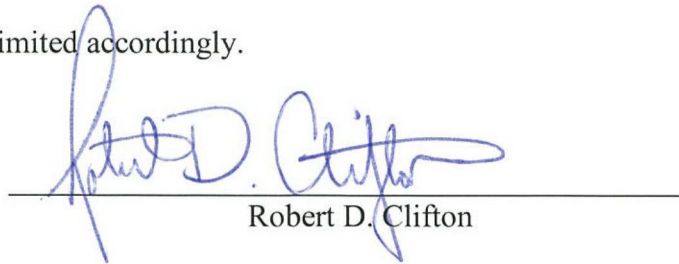 imited accordingly.
Robert D. Clifton
Robert D. Clifton